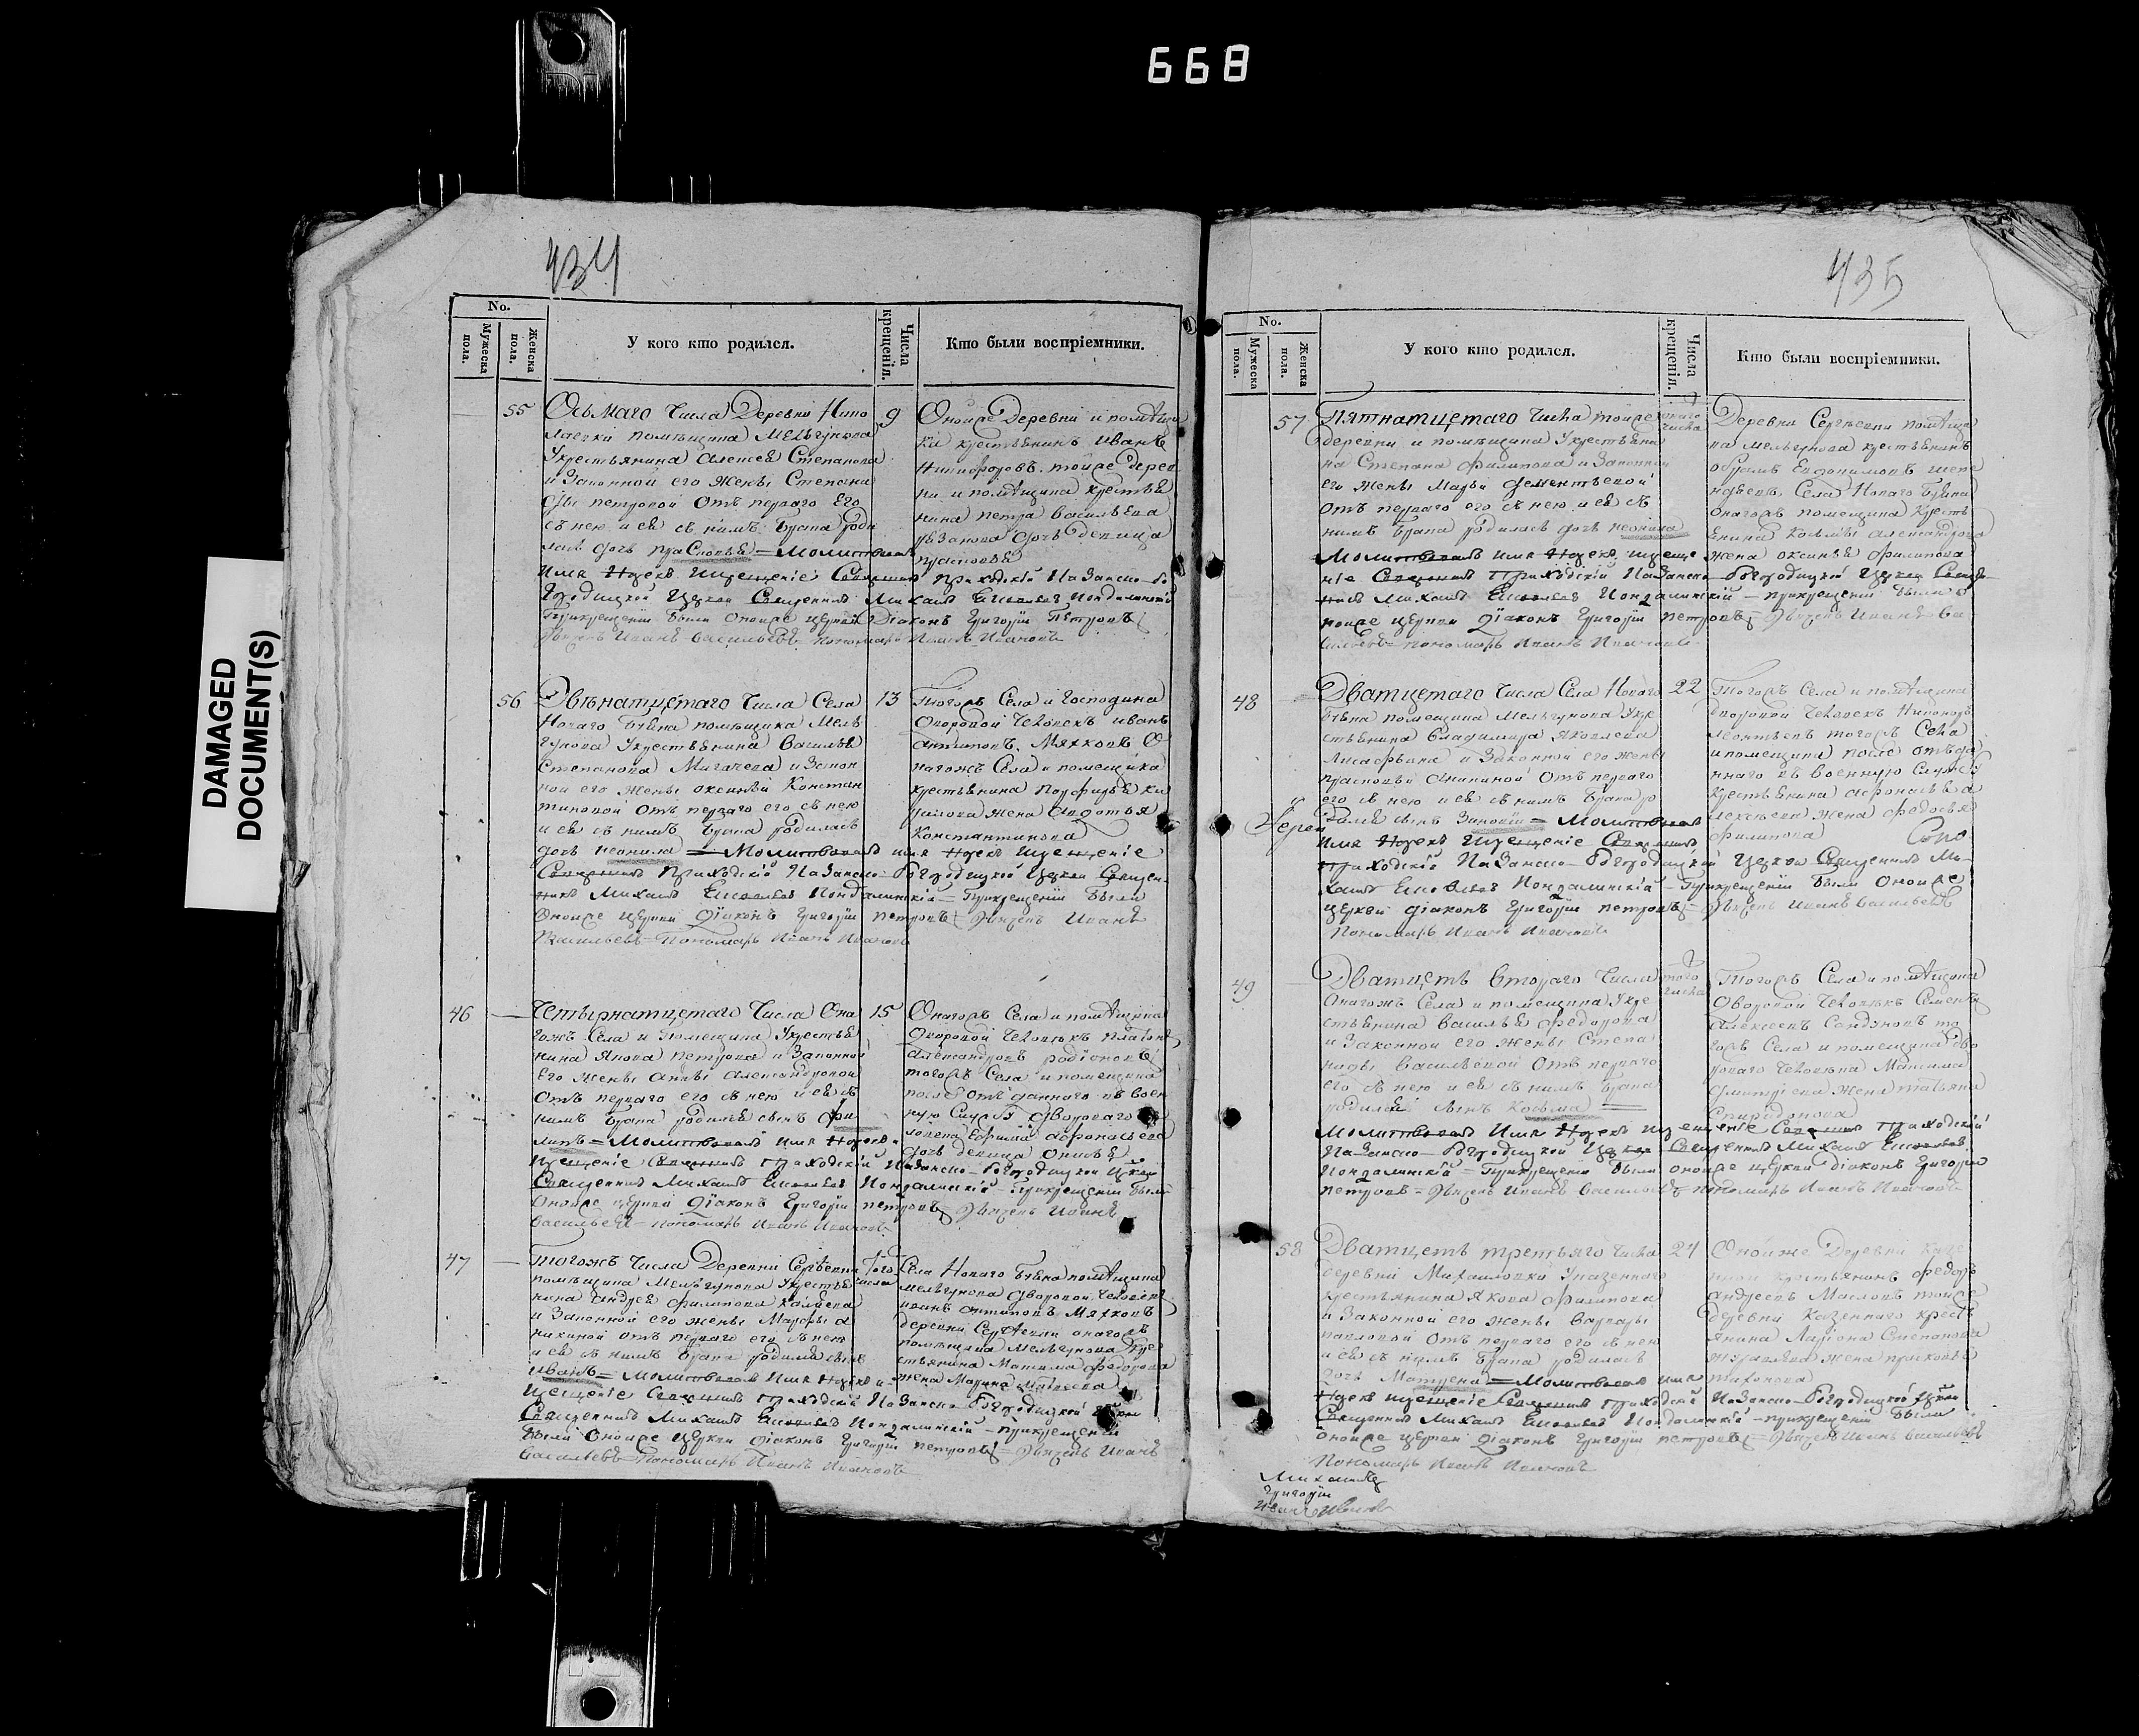 668
DAMAGED
DOCUMENT(S)
434
No.
Мужеска пола.
Женска пола.
У кого кто родился.
Числа крещенія.
Кто были воспріемники.
55
Осьмаго Числа Деревни Нико
лаевки помѣщика Мельгунова
Укрестьянина Алексея Степанова
и Законной его Жены Степани
ды петровой Отъ перваго Его
съ нею и ея съ нимъ брака роди
лась дочь праСковья = Молитвовалъ
Имя Нарекъ Икрещеніе Совершилъ приходскій Казанско-бо
городицкой Церкви Священникъ Михаилъ
Прикрещеніи были Оноже церкви Діаконъ Григорій Петровъ
Иванъ Васильевъ Пономарь Иванъ Ивановъ
9
Оноже Деревни и помѣщи
ка крестьянинъ Иванъ
Никифоровъ. тойже дерев
ни и помѣщика крестья
нина петра Васильева
дочь девица
прасковья
56
Двѣнатцетаго Числа Села
Новаго помѣщика Мель
гунова Укрестьянина Василья
Степанова Мигачева и Закон
ной его Жены оксиньи Констан
тиновой Отъ перваго его съ нею
и ея съ нимъ брака родилась
дочь неонила = Молитвовалъ имя Нарекъ Икрещеніе
Совершилъ Приходскій Казанско-Богородицкой Церкви Священ-
никъ Михаилъ = Прикрещеніи были
Оноже церкви діаконъ Григорій петровъ Иванъ
Васильевъ = Пономарь Иванъ Ивановъ
13
Тогожъ Села и Господина
Дворовой Человекъ иванъ
антиповъ. Мяхковъ О
нагожъ Села и помещика
крестьянина Порфирья ки
рилова жена Авдотья
Константинова
46
Четырнатцетаго Числа Она
гожъ Села и Помещика Укрестья
нина Якова Петрова и Законной
Его Жены анны Александровой
Отъ перваго его съ нею и ея съ
нимъ брака родился сынъ фи
липъ = Молитвовалъ имя Нарекъ и
крещеніе Совершилъ приходскій Казанско-Богородицкой Церкви
Священникъ Михаилъ - Прикрещеніи были
Оноже церкви Діаконъ Григорій петровъ Иванъ
Васильевъ = пономарь Иванъ Ивановъ
15
Онагожъ Села и помѣщика
Дворовой Человекъ Платонъ
Александровъ родіоновъ
тогожъ Села и помещика
после отъданного въ воен
ную Службу Дворваго че
ловека Ефима афонасьева
дочь девица
47
Тогожъ Числа Деревни Сергѣевки
помѣщика Мельгунова Укрестья
нина Андрея филипова
и Законной его жены Марфы а
никиной отъ перваго его съ нею
и ея съ нимъ брака родился сынъ
Иванъ = Молитвовалъ Имя Нарекъ и
Крещеніе Совершилъ приходскій Казанско-Богородицкой Церкви
Священникъ Михаилъ - прикрещеніи
были Оноже церкви діаконъ Григорій петровъ Иванъ
Васильевъ Пономарь Иванъ Ивановъ
Того числа
Села Новаго помѣщика
мельгунова дворовой человекъ
иванъ антиповъ Мяхковъ
деревни Сергѣевки онагожъ
помѣщика Мельгунова кре
стьянина Максима федорова
жена Марина Матвеева
435
No.
Мужеска пола.
Женска пола.
У кого кто родился.
Числа крещенія.
Кто были воспріемники.
57
Пятнатцетаго числа тойже
деревни и помѣщика Укрестьяни
на Степана филипова и Законной
его жены Марьи Дементьевой
отъ перваго его съ нею и ея съ
нимъ брака родилась дочь неонила
Молитвовалъ имя Нарекъ икреще
ніе Совершилъ Приходскій Казанско-богородицкой Церкви Священ-
никъ Михаилъ - прикрещеніи были о
ноже церкви діаконъ Григорій петровъ Иванъ Ва
сильевъ = пономарь Иванъ Ивановъ
онаго числа
Деревни Сергѣевки помѣщи
ка мельгунова крестьянинъ
Села Новаго
онагожъ помещика Кресть
янина Козьмы александрова
жена оксинья филипова
48
Дватцетаго Числа Села Новаго
помещика Мельгунова Укре
стьянина Владимира Яковлева
и Законной его жены
прасковьи Аникиной Отъ перваго
его съ нею и ея съ нимъ брака ро
дился сынъ Зиновій = Молитвовалъ
имя Нарекъ Икрещеніе Совершилъ
Приходскій Казанско-Богородицкой Церкви Священникъ Ми-
хаилъ - Прикрещеніи были Оноже
церкви діаконъ Григорій петровъ = Иванъ Васильевъ
Пономарь Иванъ Ивановъ
22
Тогожъ Села и помѣщика
дворовой человекъ Никоноръ
леонтьевъ тогожъ Села
ипомещика после отъда
ннаго въ военную Службу
крестьянина афонасья а
лексеева жена федосья
филипова
49
Дватцеть втораго Числа
Онагожъ Села и помещика Укре
стьянина Василья федорова
и Законной его жены Степа
ниды Васильевой Отъ перваго
его съ нею и ея съ нимъ брака
родился сынъ Козьма =
Молитвовалъ Имя Нарекъ крещеніе Совершилъ приходскій
Казанско-Богородицкой Церкви Священникъ Михаилъ
Прикрещеніи были оноже церкви діаконъ Григорій
петровъ = Иванъ Васильевъ пономарь Иванъ Ивановъ
того числа
Тогожъ Села и помѣщика
Дворовой Человекъ Семенъ
Алексеевъ то
гожъ Села и помещика дво
роваго Человека Максима
Дмитріева жена татьяна
Спиридонова
58
Дватцеть третьяго числа
деревни Михайловки Указеннаго
крестьянина Якова филипова
и Законной его жены Варвары
павловой Отъ перваго его съ нею
и ея съ нимъ брака родилась
дочь Матрена = Молитвовалъ имя
Нарекъ крещеніе Совершилъ приходскій Казанско-Богородицкой Церкви
Священникъ Михаилъ - прикрещеніи были
оноже церкви Діаконъ Григорій петровъ = Иванъ Васильевъ
Пономарь Иванъ Ивановъ
24
Оноиже Деревни Казе
нной крестьянинъ федоръ
андреевъ Масловъ тойже
деревни Казеннаго кресть
янина Ларіона Степанова
жена прасковья
тихонова
Григорій